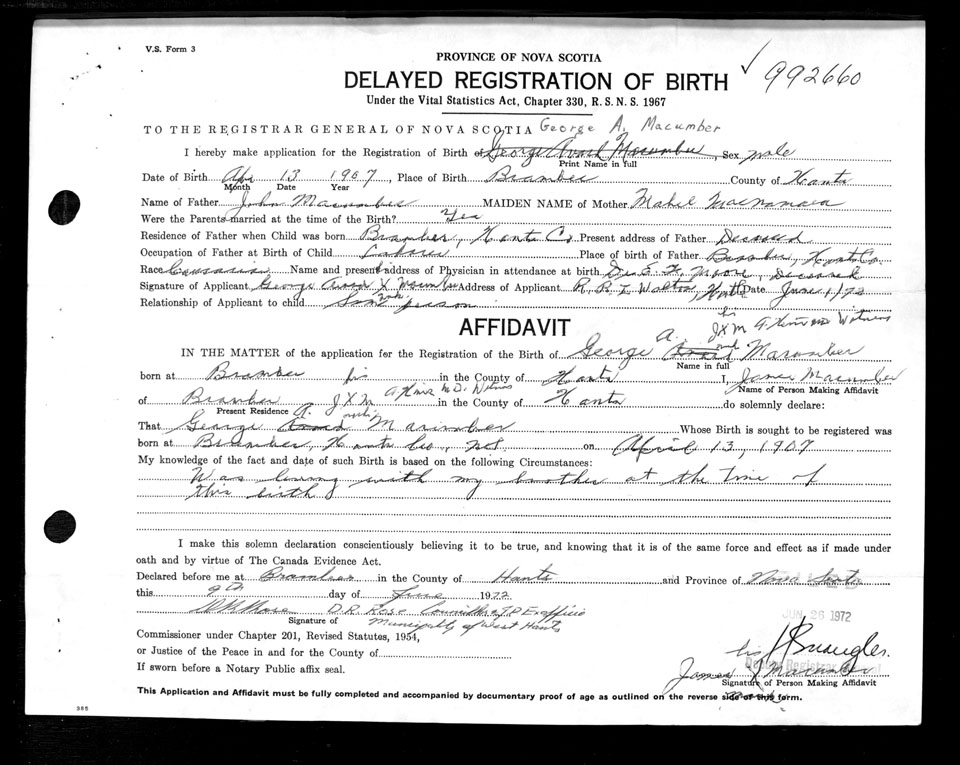 V.S. Form 3
PROVINCE OF NOVA SCOTIA
DELAYED REGISTRATION OF BIRTH ✓ 992660
Under the Vital Statistics Act, Chapter 330, R. S. N. S. 1967
TO THE REGISTRAR GENERAL OF NOVA SCOTIA George A. Macumber
I hereby make application for the Registration of Birth of George Avard Macumber, Sex male
Print Name in full
Date of Birth Apr 13 1907, Place of Birth Bramber County of Hants
Month Date Year
Name of Father John Macumber MAIDEN NAME of Mother Mabel Macnamara
Were the Parents married at the time of the Birth? Yes
Residence of Father when Child was born Bramber, Hants Co. Present address of Father Deceased
Occupation of Father at Birth of Child Laborer Place of birth of Father Bramber, Hants Co.
Race Name and present address of Physician in attendance at birth Dr. E. F. Moore, Deceased
Signature of Applicant George Avard X Macumber Address of Applicant R. R. 1, Walton, Hants Date June 1/72
Relationship of Applicant to child person
his
AFFIDAVIT J X M Witness
A.
IN THE MATTER of the application for the Registration of the Birth of George Avard Macumber
Name in full
born at Bramber in the County of Hants I, James Macumber
his Name of Person Making Affidavit
of Bramber J X M in the County of Hants do solemnly declare:
Present Residence A.
That George Avard Macumber Whose Birth is sought to be registered was
born at Bramber, Hants Co., N.S. on April 13, 1907
My knowledge of the fact and date of such Birth is based on the following Circumstances:
Was living with my brother at the time of
this birth
I make this solemn declaration conscientiously believing it to be true, and knowing that it is of the same force and effect as if made under
oath and by virtue of The Canada Evidence Act.
Declared before me at Bramber in the County of Hants and Province of Nova Scotia
this 9th day of June 1972
D R Rose D. R. Rose Councillor & J P Exofficio
Signature of Municipality of West Hants
JUN 26 1972
Commissioner under Chapter 201, Revised Statutes, 1954,
or Justice of the Peace in and for the County of
his
Deputy Registrar General
If sworn before a Notary Public affix seal.
James X Macumber
Signature of Person Making Affidavit
mark
This Application and Affidavit must be fully completed and accompanied by documentary proof of age as outlined on the reverse side of this form.
385